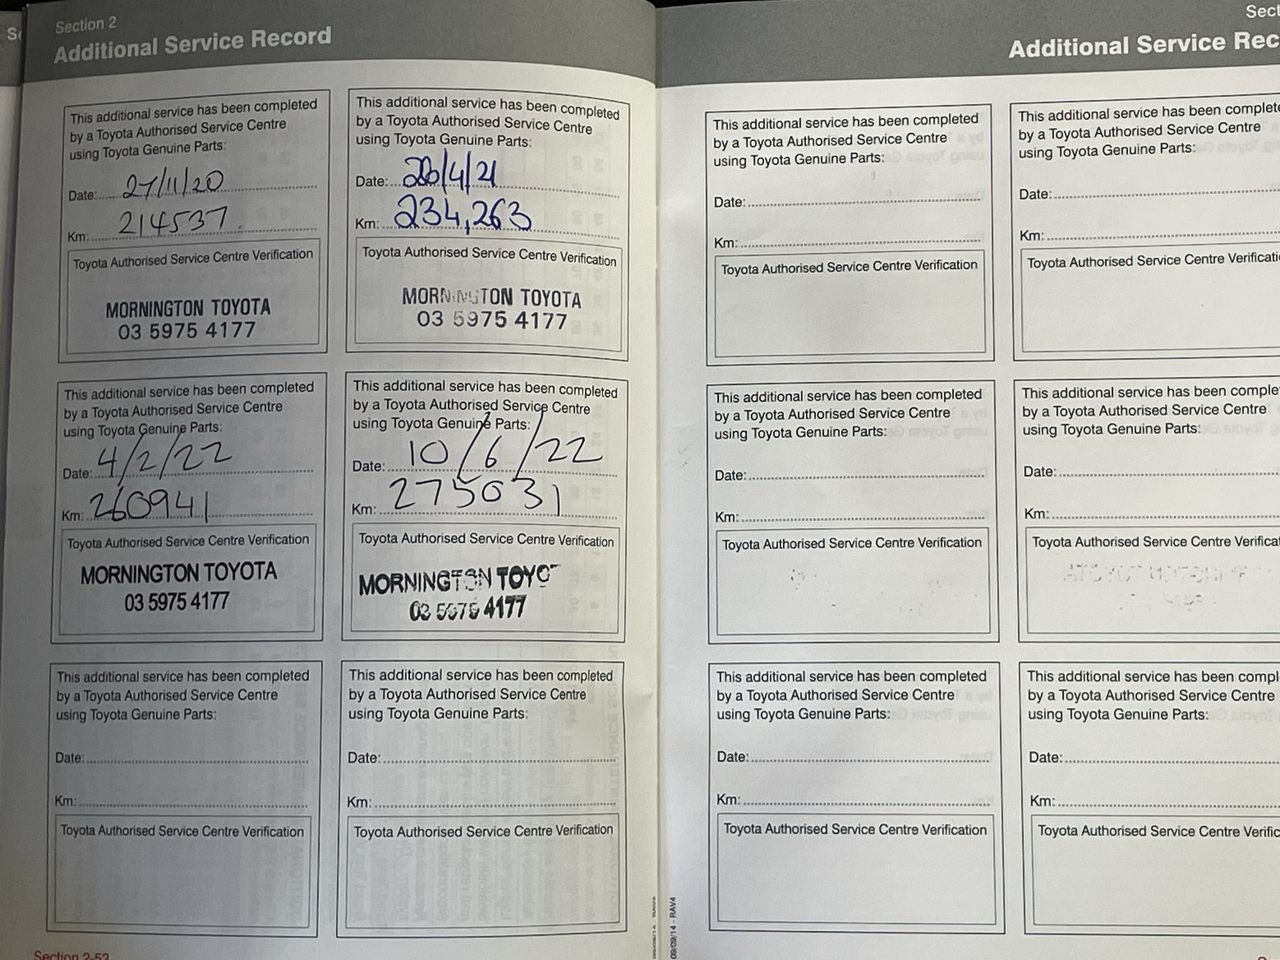 Section 2
Additional Service Record
This additional service has been completed
by a Toyota Authorised Service Centre
using Toyota Genuine Parts:
Date: 27/11/20
Km: 214537
Toyota Authorised Service Centre Verification
MORNINGTON TOYOTA
03 5975 4177
This additional service has been completed
by a Toyota Authorised Service Centre
using Toyota Genuine Parts:
Date: 20/4/21
Km: 234,263
Toyota Authorised Service Centre Verification
MORNINGTON TOYOTA
03 5975 4177
This additional service has been completed
by a Toyota Authorised Service Centre
using Toyota Genuine Parts:
Date: 4/2/22
Km: 260941
Toyota Authorised Service Centre Verification
MORNINGTON TOYOTA
03 5975 4177
This additional service has been completed
by a Toyota Authorised Service Centre
using Toyota Genuine Parts:
Date: 10/6/22
Km: 275031
Toyota Authorised Service Centre Verification
MORNINGTON TOYO
03 5975 4177
This additional service has been completed
by a Toyota Authorised Service Centre
using Toyota Genuine Parts:
Date:
Km:
Toyota Authorised Service Centre Verification
This additional service has been completed
by a Toyota Authorised Service Centre
using Toyota Genuine Parts:
Date:
Km:
Toyota Authorised Service Centre Verification
Section 2-52
Sect
Additional Service Rec
This additional service has been completed
by a Toyota Authorised Service Centre
using Toyota Genuine Parts:
Date:
Km:
Toyota Authorised Service Centre Verification
This additional service has been complete
by a Toyota Authorised Service Centre
using Toyota Genuine Parts:
Date:
Km:
Toyota Authorised Service Centre Verificati
This additional service has been completed
by a Toyota Authorised Service Centre
using Toyota Genuine Parts:
Date:
Km:
Toyota Authorised Service Centre Verification
This additional service has been comple
by a Toyota Authorised Service Centre
using Toyota Genuine Parts:
Date:
Km:
Toyota Authorised Service Centre Verifica
This additional service has been completed
by a Toyota Authorised Service Centre
using Toyota Genuine Parts:
Date:
Km:
Toyota Authorised Service Centre Verification
This additional service has been compl
by a Toyota Authorised Service Centre
using Toyota Genuine Parts:
Date:
Km:
Toyota Authorised Service Centre Verific
09/09/14 - RAV4